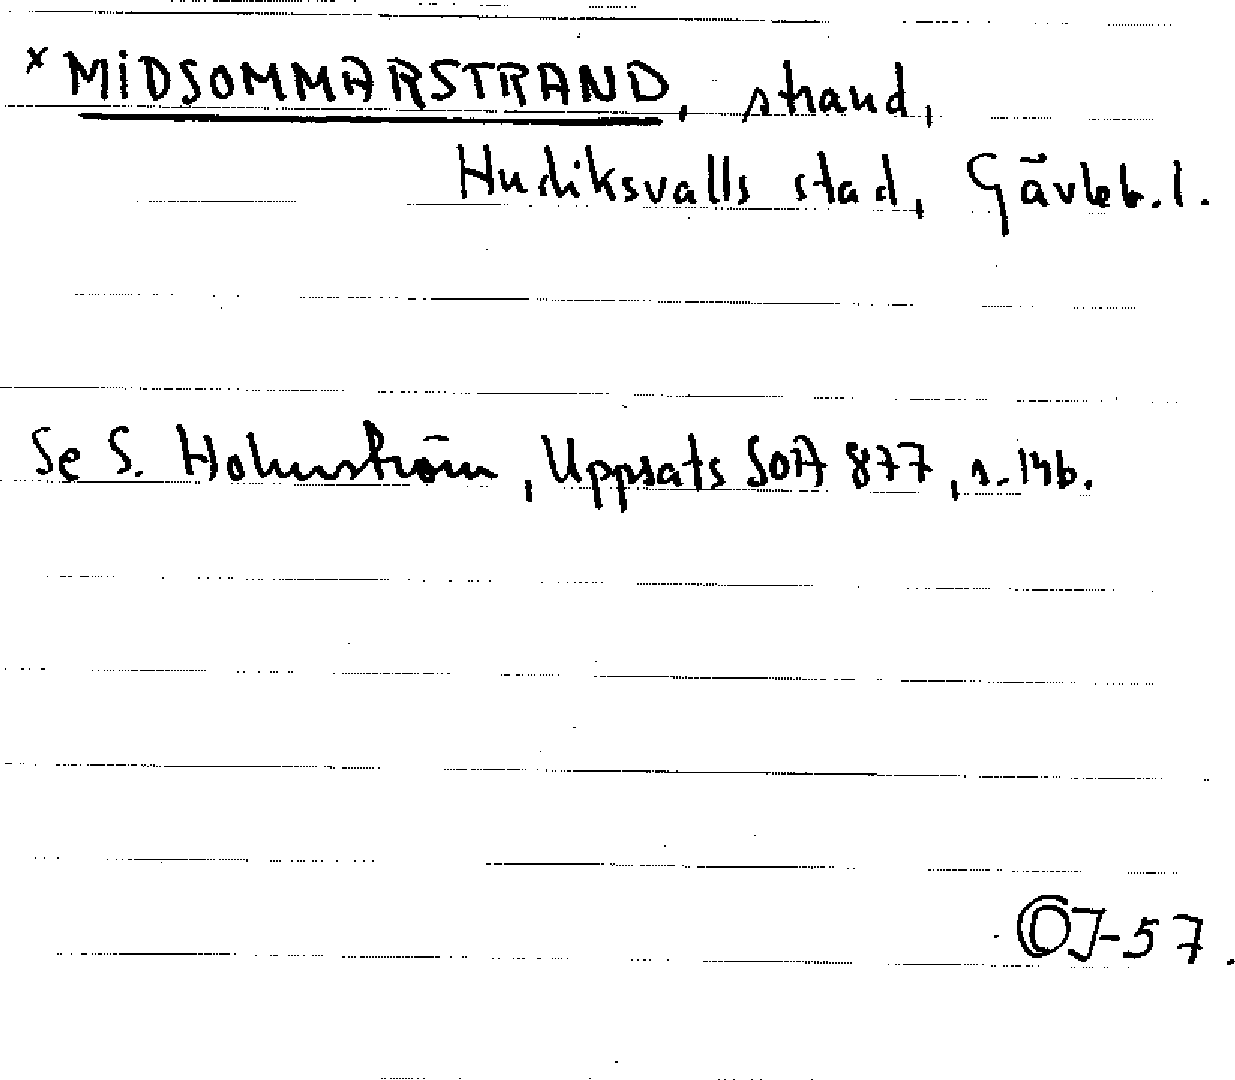 x MIDSOMMARSTRAND, strand,
Hudiksvalls stad, Gävleb. l.
Se S. Holmström, Uppsats SOA 877, s. 14b.
OJ-57.